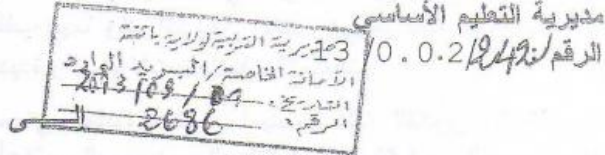 مديرية التعليم الأساسي
الرقم 242/0.0.2/13
مديرية التربية لولاية باتنة
الأمانة الخاصة/البريد الوارد
التاريخ: 2013/09/04
الرقم: 2686
إلى